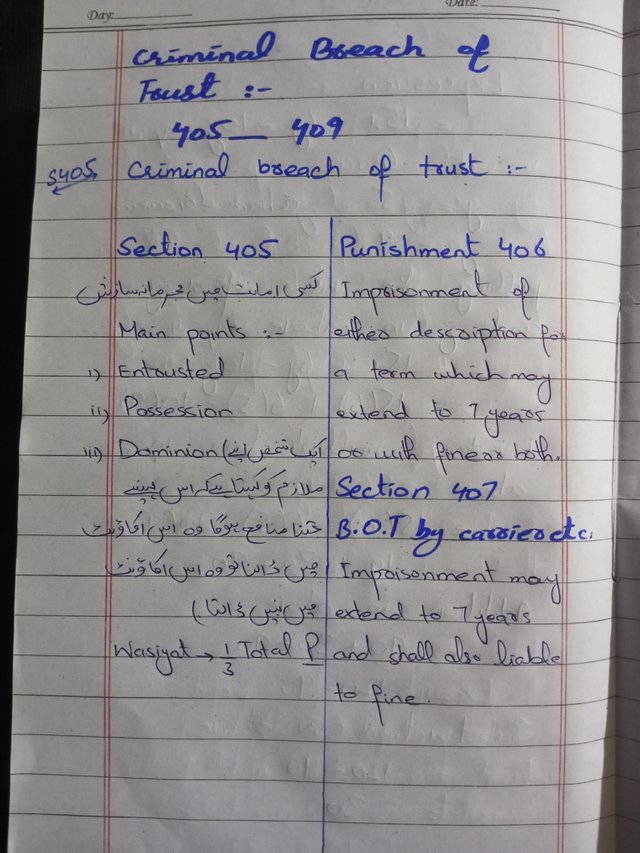 Day:
Date:
Criminal Breach of
Trust :-
405 — 409
S405, Criminal breach of trust :-
Section 405
کسی امانت میں مجرمانہ سازش
Main points :-
i) Entrusted
ii) Possession
iii) Dominion (ایک شخص اپنے
ملازم کو کہتا ہے کہ اس مہینے
جتنا منافع ہوگا وہ اس اکاؤنٹ
میں ڈالنا تو وہ اس اکاؤنٹ
میں نہیں ڈالتا)
Wasiyat → 1/3 Total P
Punishment 406
Imprisonment of
either description for
a term which may
extend to 7 years
or with fine or both.
Section 407
B.O.T by carrier etc.
Imprisonment may
extend to 7 years
and shall also liable
to fine.